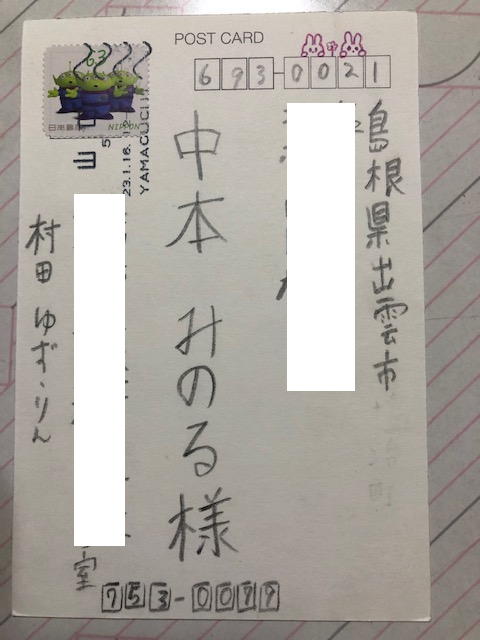 POST CARD
63
日本郵便
NIPPON
23.1.16
YAMAGUCHI
693-0021
島根県出雲市
中本 みのる様
室
村田 ゆず・りん
753-0079